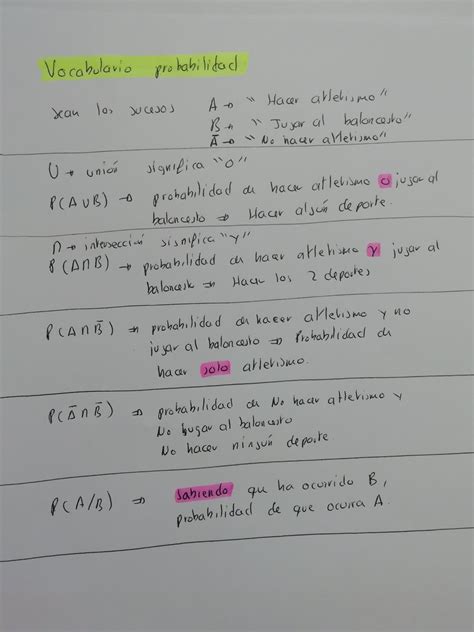 Vocabulario probabilidad
sean los sucesos A → "Hacer atletismo"
B → "Jugar al baloncesto"
Ā → "No hacer atletismo"
U → unión significa "o"
P(A∪B) → probabilidad de hacer atletismo o jugar al
baloncesto ⇒ Hacer algún deporte.
∩ → intersección significa "y"
P(A∩B) → probabilidad de hacer atletismo y jugar al
baloncesto ⇒ Hacer los 2 deportes
P(A∩B̄) ⇒ probabilidad de hacer atletismo y no
jugar al baloncesto ⇒ Probabilidad de
hacer solo atletismo.
P(Ā∩B̄) ⇒ probabilidad de No hacer atletismo y
No jugar al baloncesto
No hacer ningún deporte
P(A/B) ⇒ sabiendo que ha ocurrido B,
probabilidad de que ocurra A.